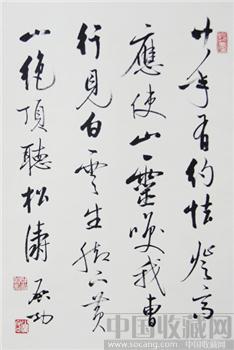 廿年有约怯登高
應使山靈咲我曹
行見白雲生脚下黄
山绝頂聽松濤
启功
中国收藏网
www.socang.com